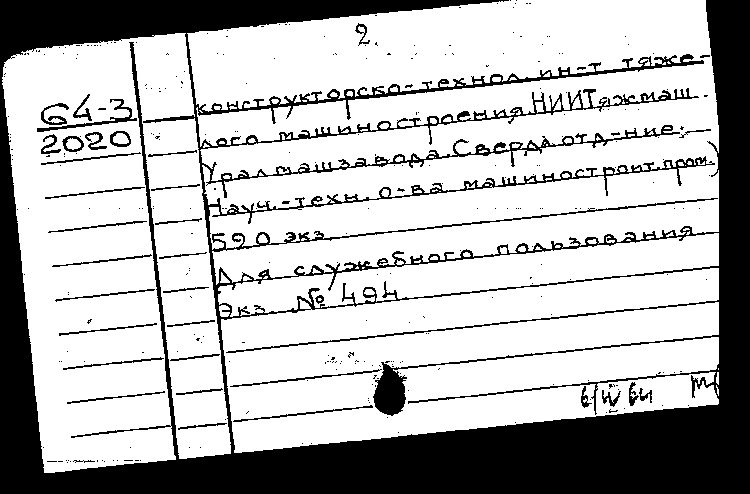 2.
64-3
2020
конструкторско-технол. ин-т тяже-
лого машиностроения НИИТяжмаш
Уралмашзавода. Свердл. отд-ние
Науч.-техн. о-ва машиностроит. пром.)
590 экз.
Для служебного пользования
Экз. № 494